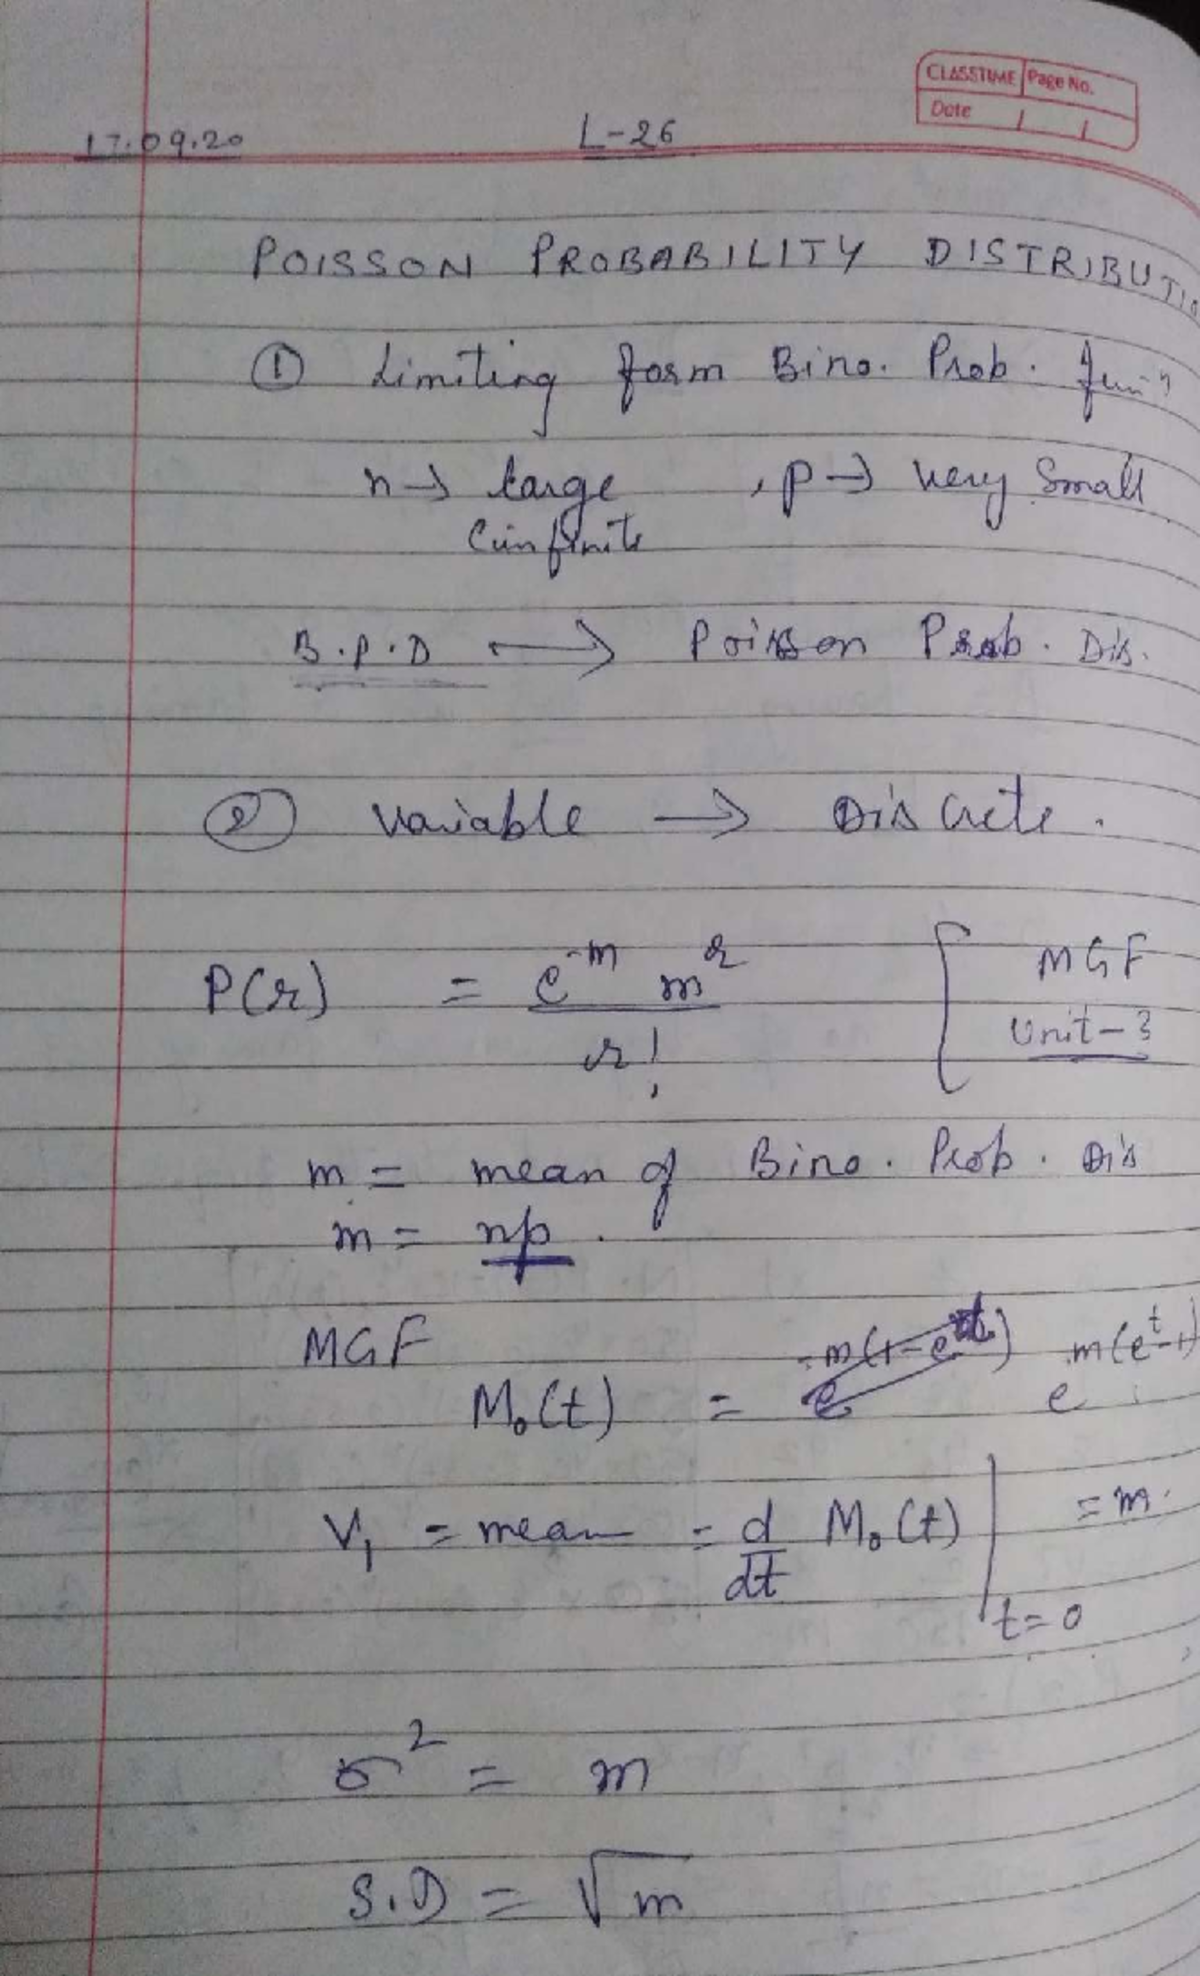 CLASSTIME Page No.
Date / /
17.09.20 L-26
POISSON PROBABILITY DISTRIBUTIO
① Limiting form Bino. Prob. funⁿ
n → large , p → very small
(infinite
B.P.D → Poisson Prob. Dis.
② Variable → Discrete.
P(r) = e^-m m^r / r! [ MGF
Unit-3
m = mean of Bino. Prob. Dis
m = np.
MGF
M₀(t) = e^m(e^t-1)
V₁ = mean = d/dt M₀(t) |t=0 = m.
σ² = m
S.D = √m